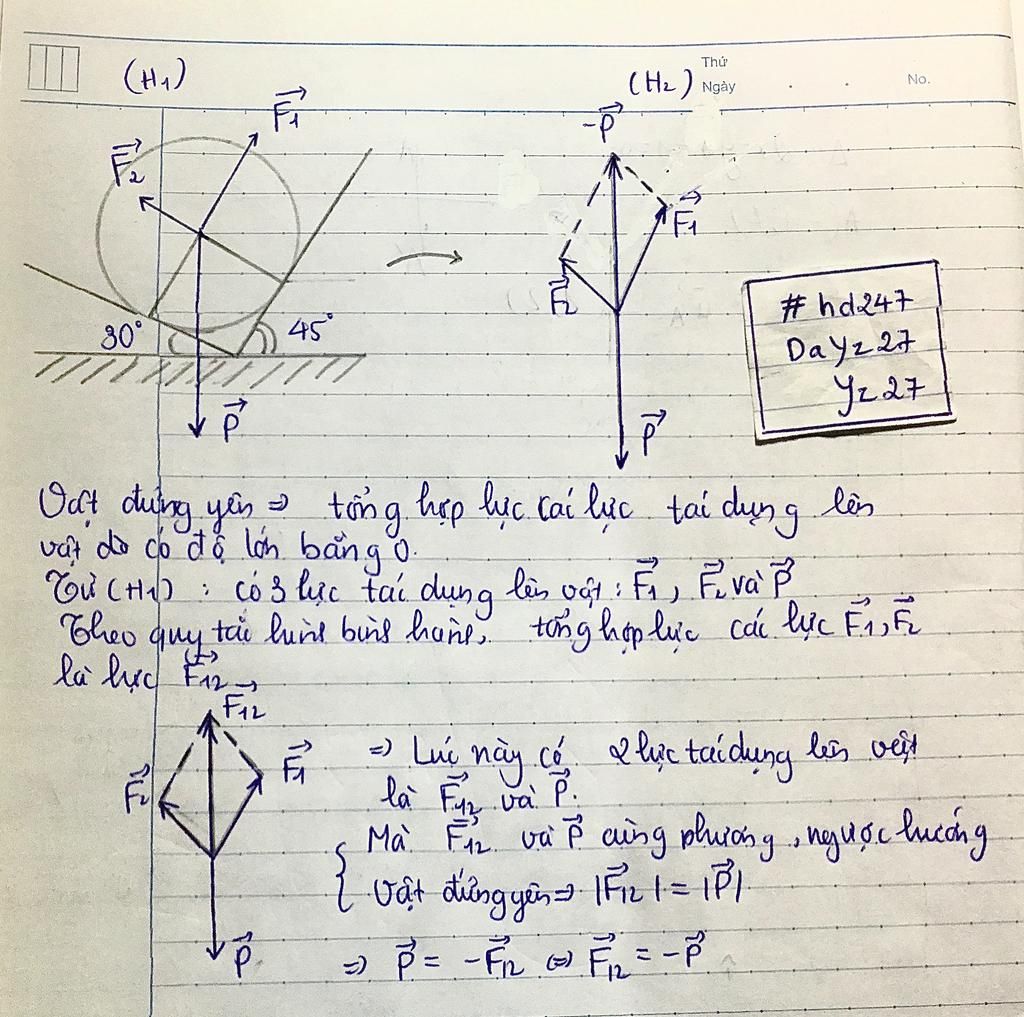 (H₁)
Thứ
(H₂) Ngày
No.
F₁→
F₂→
-P→
F₁→
F₂→
30°
45°
P→
P→
# hd247
DaYz27
Yz27
Vật đứng yên => tổng hợp lực các lực tác dụng lên
vật đó có độ lớn bằng 0.
Từ (H₁) : có 3 lực tác dụng lên vật : F₁→, F₂→ và P→
Theo quy tắc hình bình hành, tổng hợp lực các lực F₁→, F₂→
là lực F₁₂→
F₁₂→
F₂→
F₁→
P→
=> Lúc này có 2 lực tác dụng lên vật
là F₁₂→ và P→.
Mà F₁₂→ và P→ cùng phương, ngược hướng
Vật đứng yên => |F₁₂→| = |P→|
=> P→ = -F₁₂→ <=> F₁₂→ = -P→